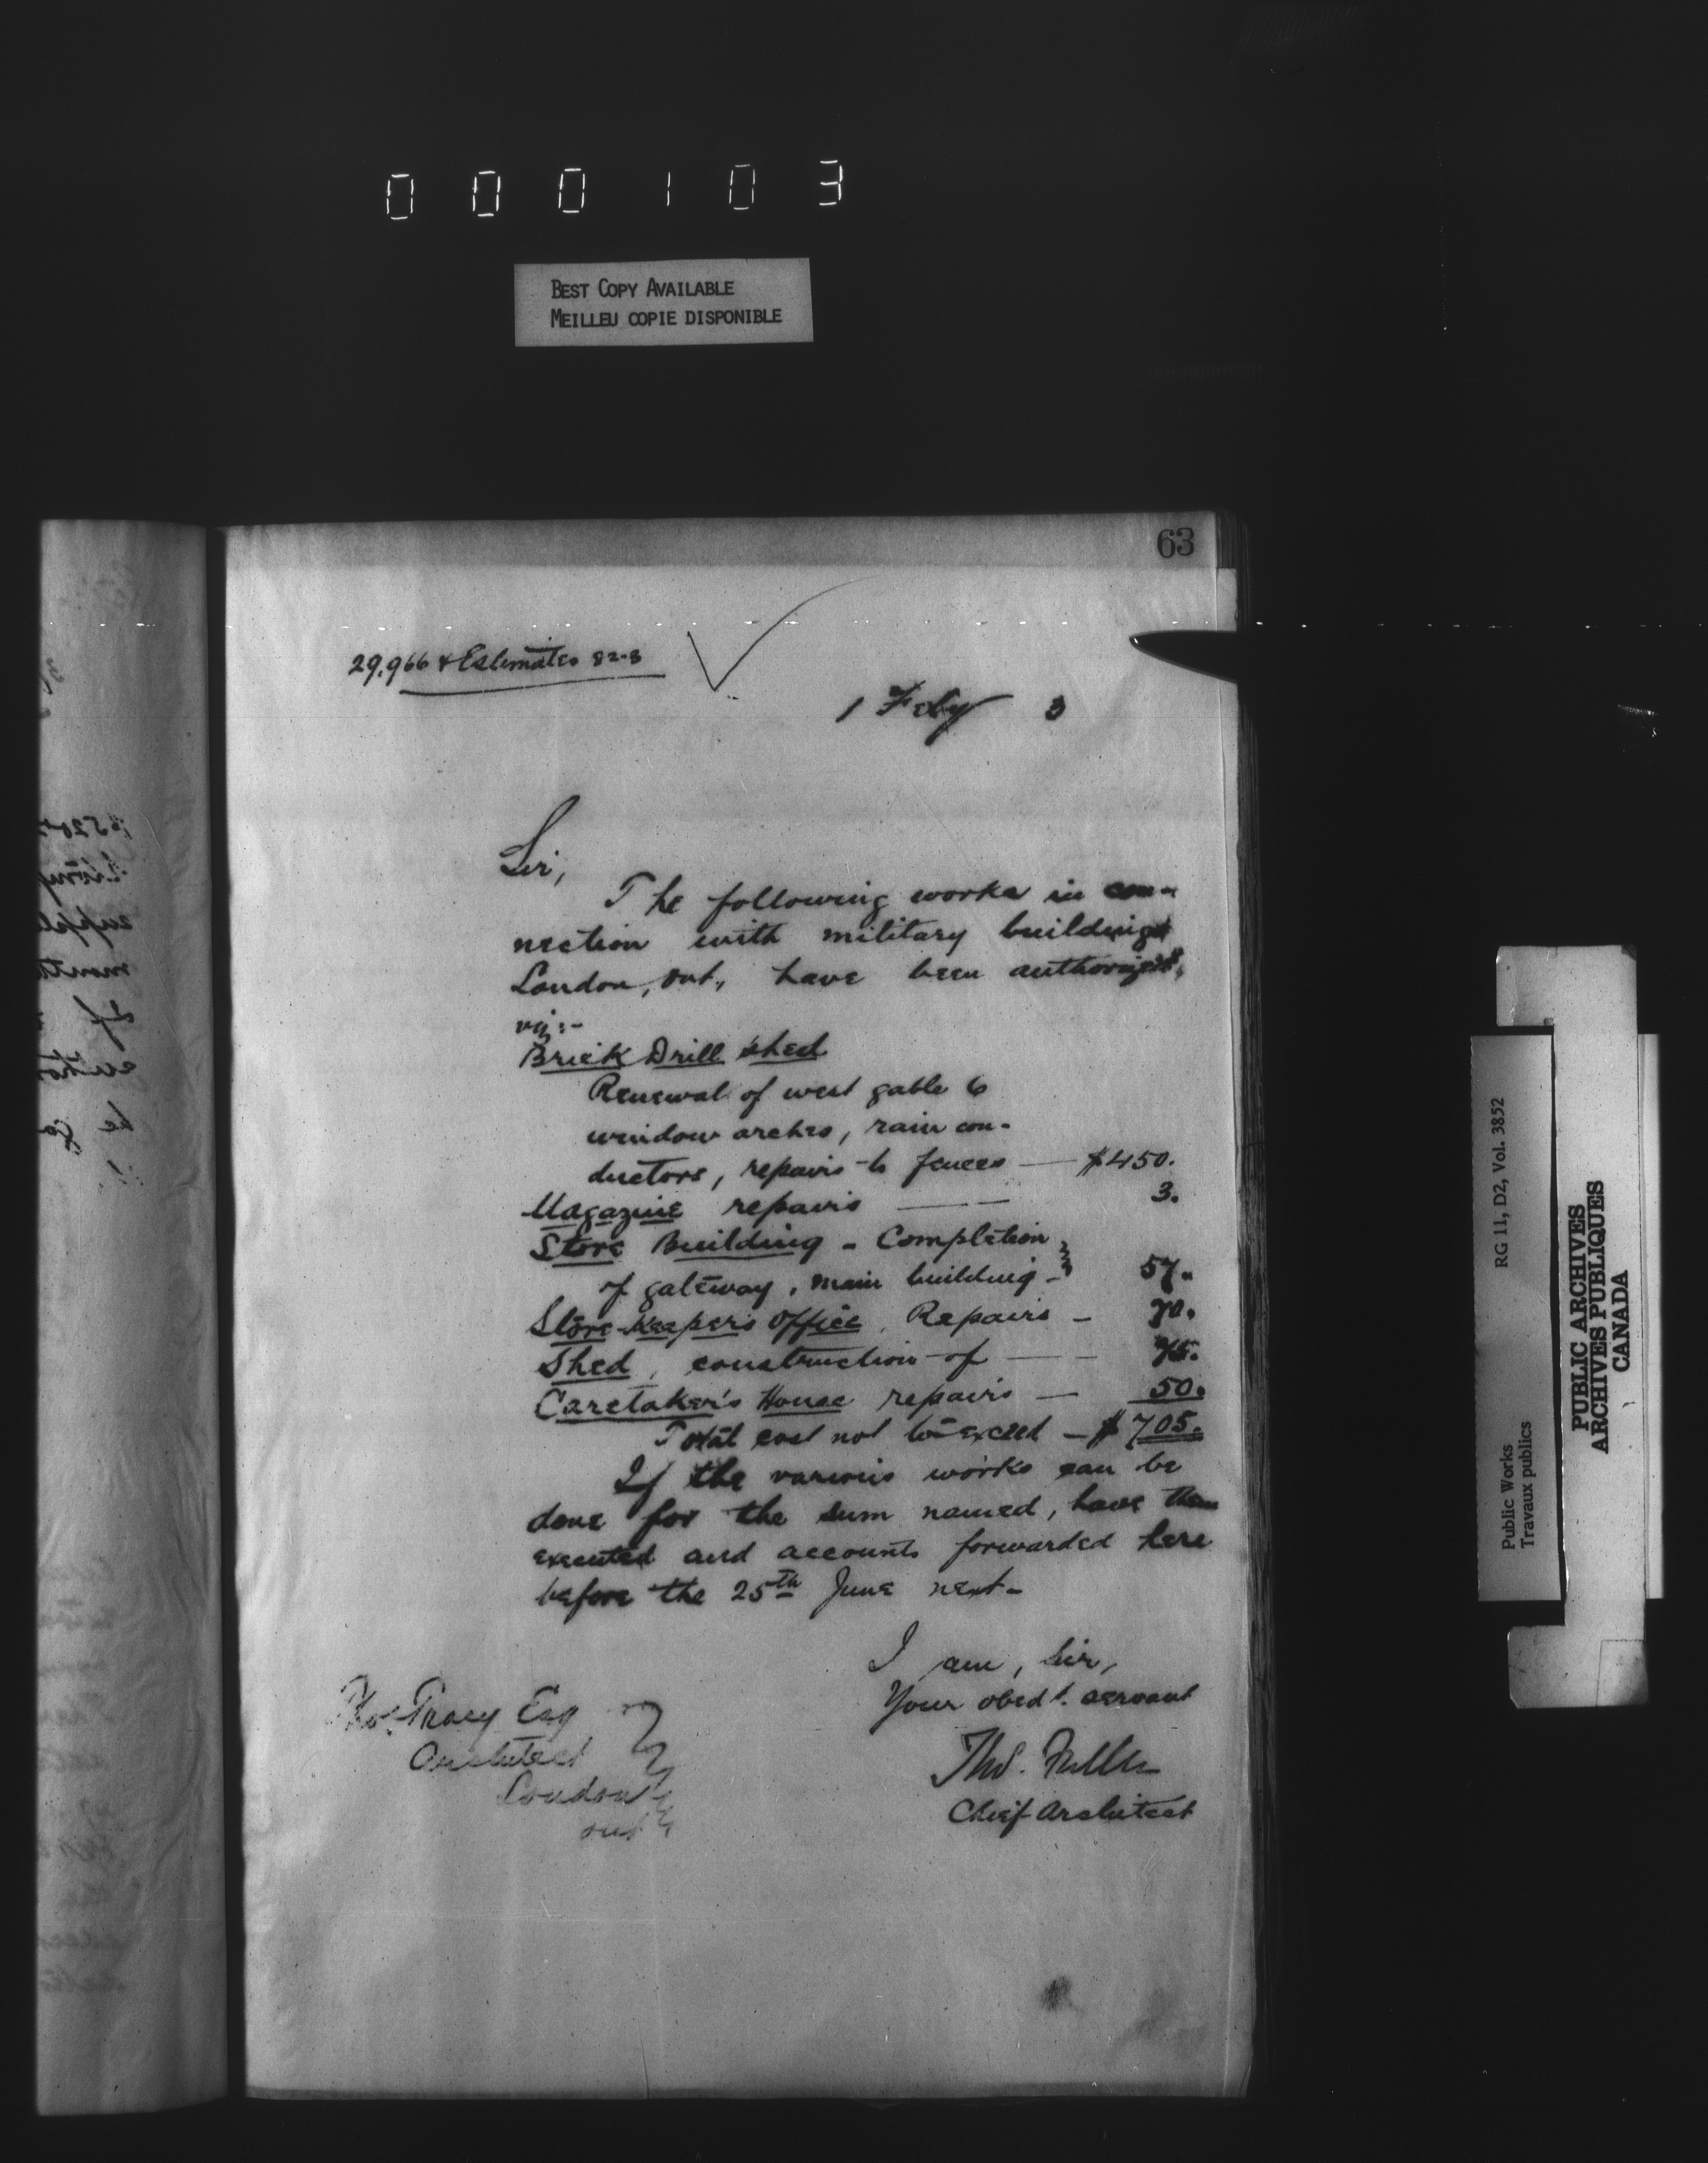 000103
BEST COPY AVAILABLE
MEILLEU COPIE DISPONIBLE
63
29,966 & Estimates 82-3
1 Feby 3
Sir,
The following works in con-
nection with military buildings
London, Ont., have been authorized,
viz:-
Brick Drill shed
Renewal of west gable 6
window arches, rain con-
ductors, repairs to fences — $450.
Magazine repairs — 3.
Store Building - Completion
of gateway, main building - 57.
Store-Keeper's Office, Repairs - 70.
Shed, construction of — 75.
Caretaker's House repairs — 50.
Total cost not to exceed — $705.
If the various works can be
done for the sum named, have them
executed and accounts forwarded here
before the 25th June next-
I am, Sir,
Your obedt. servant
Thos. Fuller
Chief Architect
Thos. Tracy Esq
Architect
London
Ont
Public Works
Travaux publics
RG 11, D2, Vol. 3852
PUBLIC ARCHIVES
ARCHIVES PUBLIQUES
CANADA